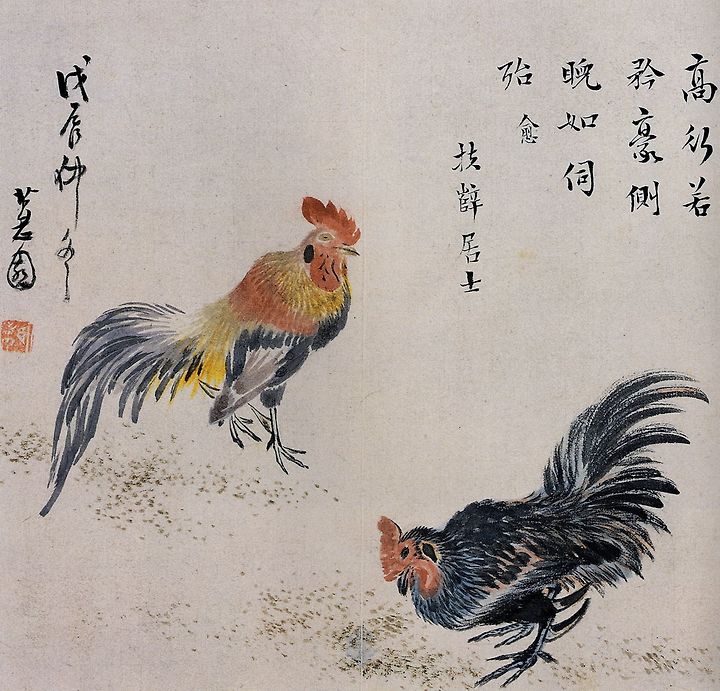 高行若
矜豪側
睨如伺
殆 愈
扶 居士
戊辰仲冬
蕙園